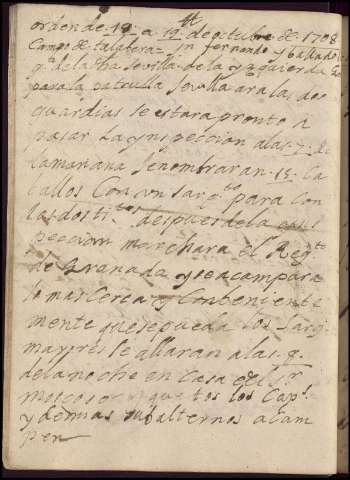 orden de 19 a 12 de octubre de 1708
Campo de talabera = Dn fernando y ballado
gª de la dha Sevilla de la yzquierda
para la patrulla Sevilla ara las dos
guardias se estara pronto a
pasar la ynspeccion a las 7 de
la mañana Se nombraran 15 Ca
ballos Con un Sargto para Con
las dos despues de la ens
peccion marchara el Regto
de Granada y se acampara
lo mas Cerca y Conveniente
mente que se pueda los Sarg
mayres Se allaran a las 9
de la noche en Casa del Sr
moscoso que tos los Caps
y demas subalternos acam
pen